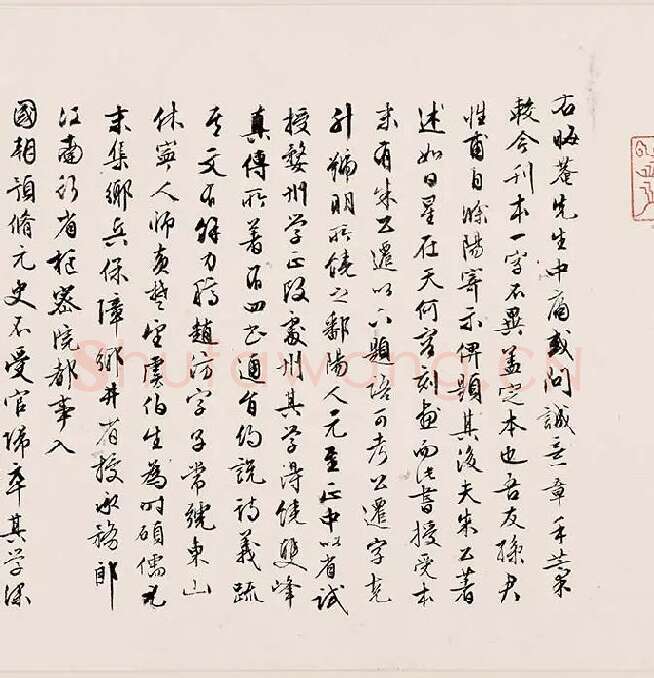 右晦菴先生中庸或問誠意章手藁
較今刊本一字不異蓋定本也吾友孫君
性甫自滁陽寄示俾題其後夫朱公著
述如日星在天何容刻畫而此書授受本
末有朱公遷以下題語可考公遷字克
升號明所饒之鄱陽人元至正中以省試
授婺州學正改處州其學得饒雙峰
真傳所著有四書通旨約說詩義疏
其文有餘力趙汸字子常號東山
休寧人師黃楚望虞伯生為時碩儒元
末集鄉兵保障鄉井有授承務郎
江南行省樞密院都事入
國朝預脩元史不受官歸卒其學深
shufawang.cn